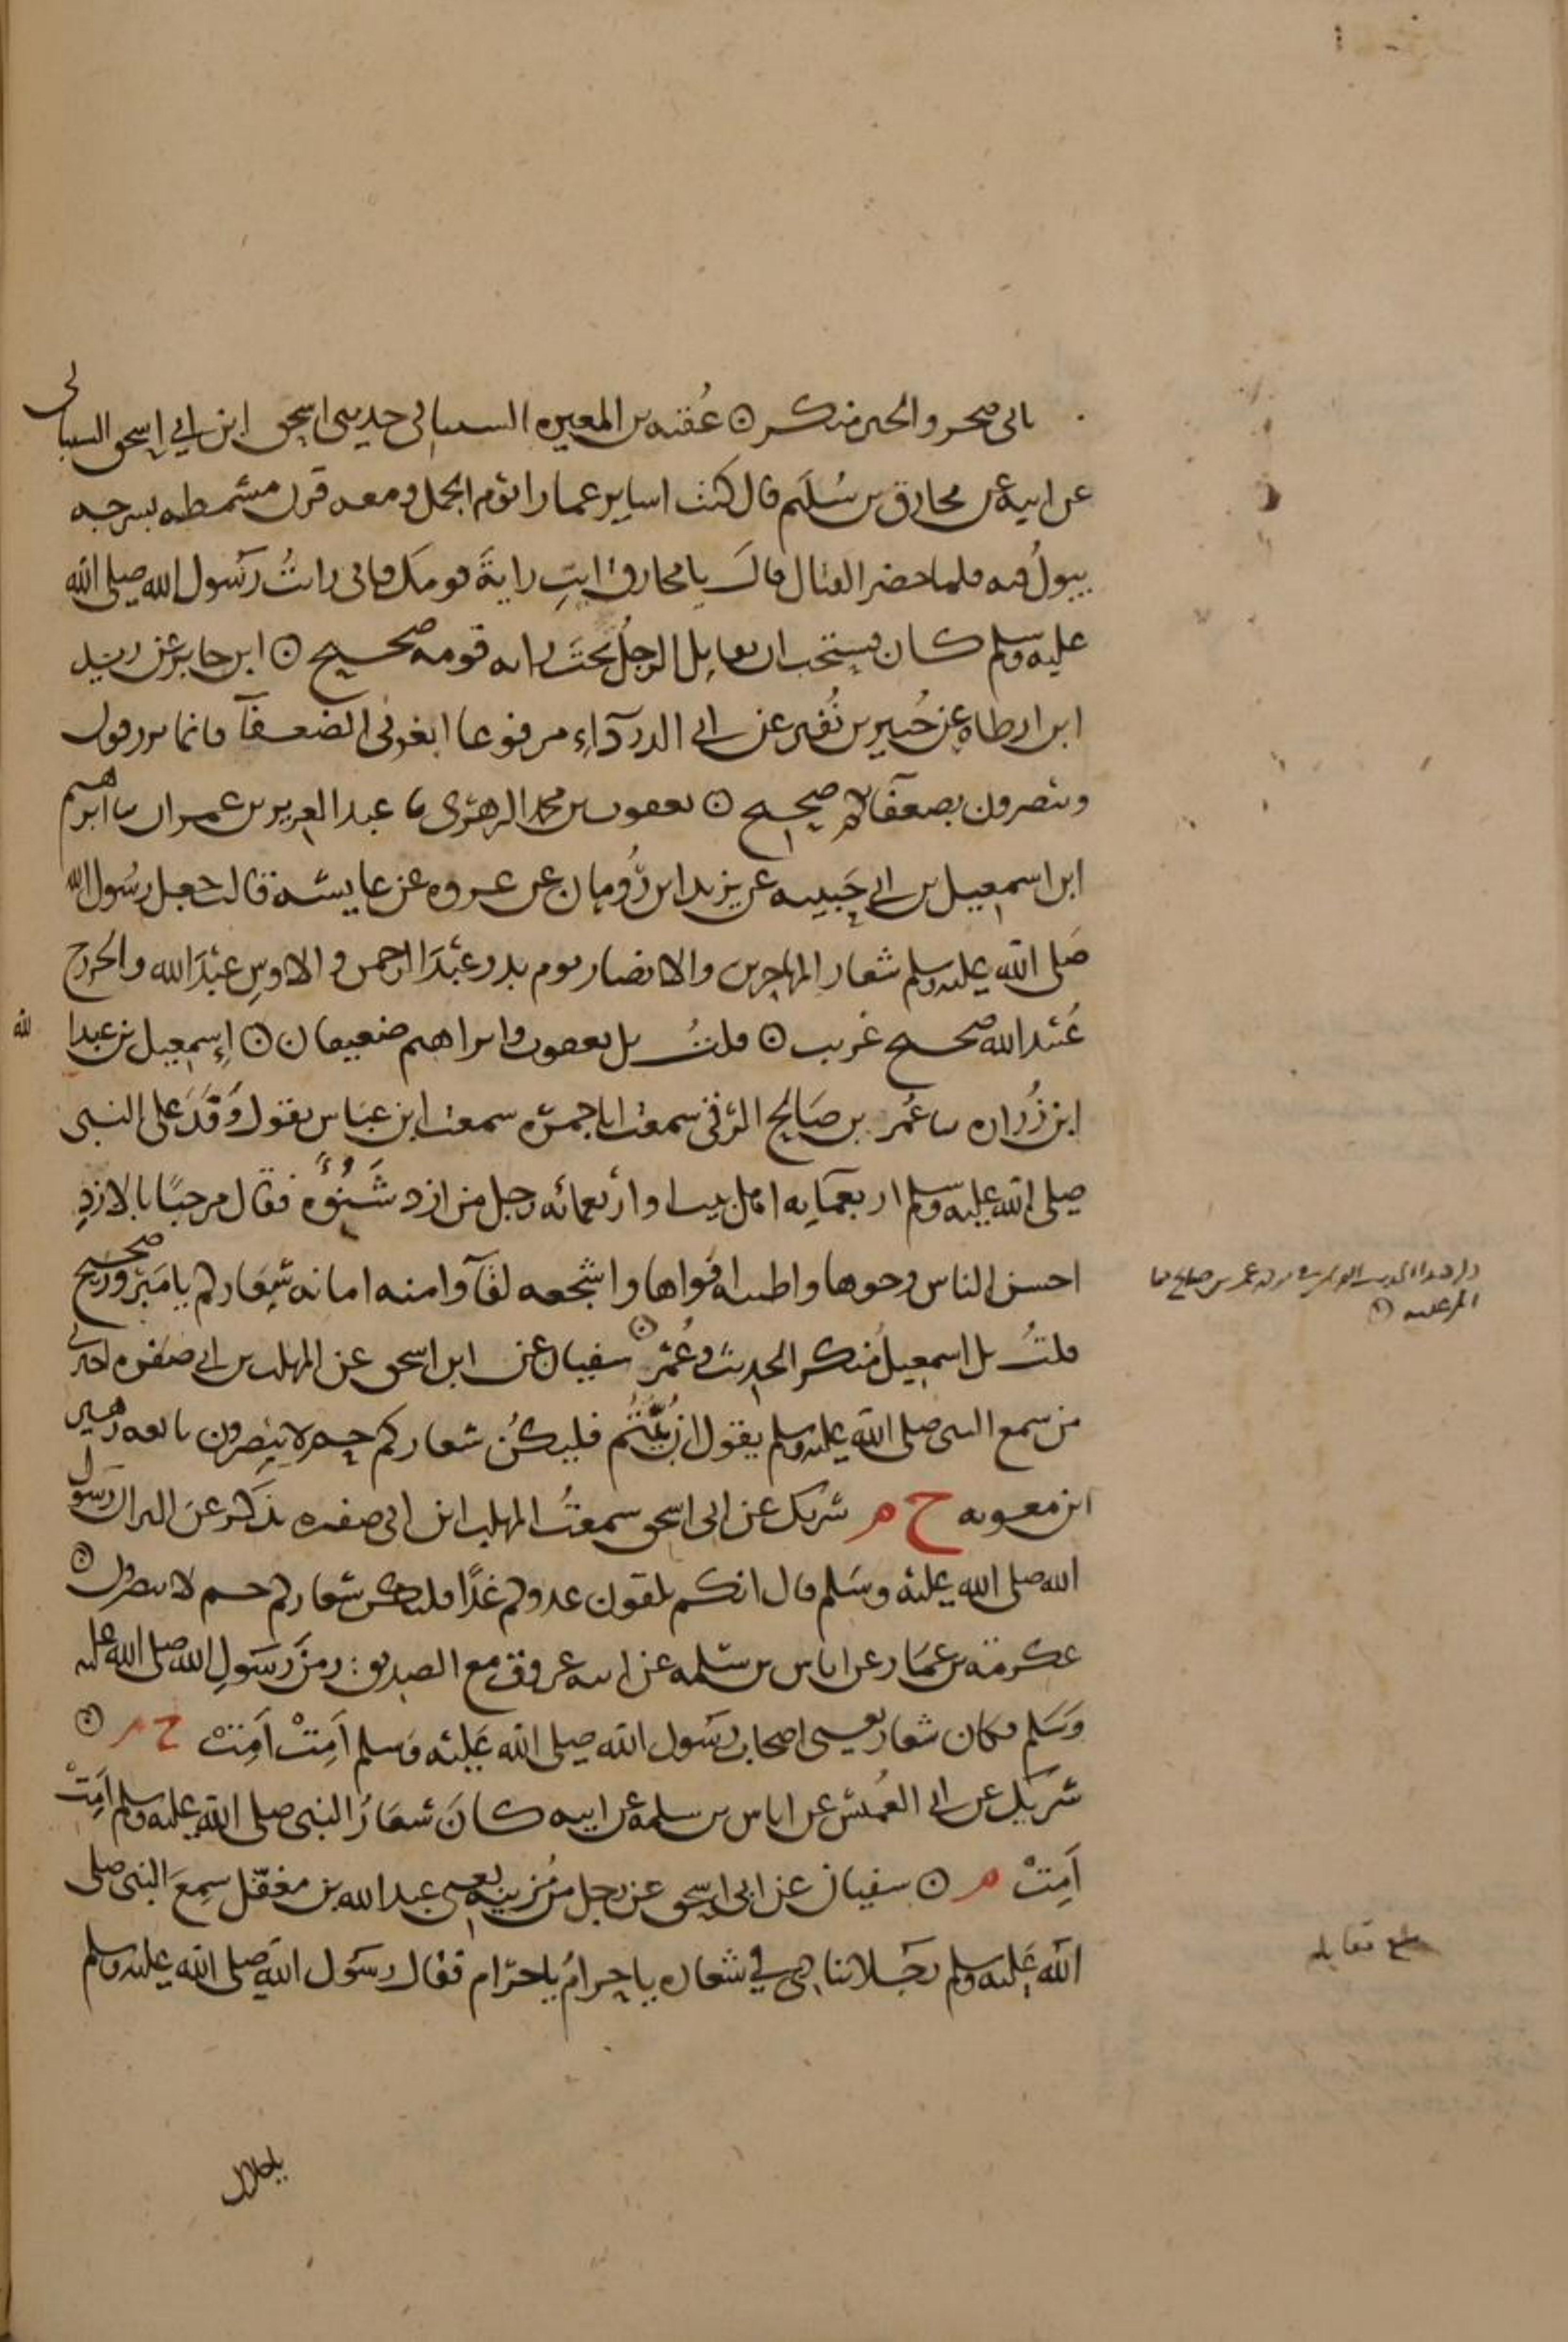 بابي صخر والخبر منكر ⊙ عقبة بن المغيرة الشيباني حدثني اسحق ابن ابي اسحق الشيباني
عن ابيه عن مخارق بن سُليم قال كنت اساير عمارا يوم الجمل ومعه قرن مستمطه بسرجه
يبولُ فيه فلما حضر القتال قال يا مخارق ايتِ رايةَ قومك فاني رايتُ رسول الله صلى الله
عليه وسلم كان يستحب ان يقاتل الرجلُ تحتَ راية قومه صحيح ⊙ ابن جابر عن زيد
ابن ارطاه عن جُبير بن نُفير عن ابي الدرداء مرفوعا ابغوني الضعفآ فانما ترزقون
وتنصرون بضعفائكم صحيح ⊙ يعقوب بن محمد الزهري ثنا عبد العزيز بن عمران ثنا ابرهيم
ابن اسمعيل بن ابي حَبيبه عن يزيد ابن رُومان عن عروه عن عايشه قالت جعل رسُول الله
صَلى الله عليه وسلم شعار المهاجرين والانصار يوم بدر عبْدَ الرحمن والاوسِ عبْدَ الله والخزرج
عُبَيد الله صحيح غريب ⊙ قلتُ بل يعقوب وابراهيم ضعيفان ⊙ إسمعيل بن عبد الله
ابن زُراره ثنا عُمر بن صَالح الازدي سمعت ابا جمره سمعت ابن عبَاس يقول وَفَدَ على النبي
صلى الله عليه وسلم اربعمايه اهل بيت او اربعمائه رجل من ازد شَنُؤَه فقال مرحبًا بالازدِ
احسن الناس وجوها واطيبه افواها واشجعه لقآ وامنه امانه شِعَاركم يا مَبرُور صحيح
قلتُ بل اسمعيل مُنكر الحديث وعُمَر ⊙ سفيان عن ابي اسحق عن المهلب بن ابي صفره اخبرني
من سمع النبي صلى الله عليه وسلم يقول ان بُيِّتُّم فليكُن شعاركم حم لا ينصرون تابعه زهير
ابن معويه خ م شريك عن ابي اسحق سمعتُ المهلب ابن ابي صفره يذكر عن البرا ان رسول
الله صلى الله عليه وسَلم قال انكم تلقون عدوكم غدًا فليكن شعاركم حم لا ينصرون ⊙
عكرمة بن عمَار عن اياس بن سَلمه عن ابيه غزوت مع الصديق زمنَ رسَولِ الله صلى الله عليه
وَسَلم فكان شعار يعني اصحاب رسَول الله صلى الله عَليْه وَسلم اَمِتْ اَمِتْ خ م ⊙
شريك عن ابي العُميْس عن اياس بن سلمه عن ابيه كانَ شعَارُ النبي صلى الله عليه وسلم اَمِتْ
اَمِتْ م ⊙ سفيان عن ابي اسحق عن رجل من مُزينه يعني عبد الله بن مغفّل سمِعَ النبي صلى
الله عَليه وسلم رجَلا ينادي في شعاره يا حرامُ يا حرَام فقال رسَول الله صلى الله عليه وسلم
يا حلال
بلغ مقابله